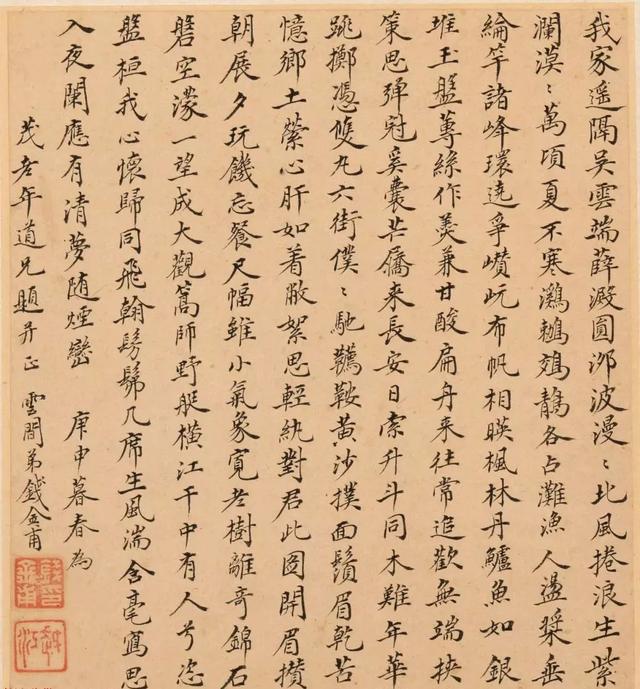 我家遥隔吳雲端薛澱圓泖波漫〻北風捲浪生紫
瀾漠〻萬頃夏不寒鸂鶒鵁鶄各占灘漁人盪槳垂
綸竿諸峰環遶爭巑岏布帆相暎楓林丹鱸魚如銀
堆玉盤蓴絲作羹兼甘酸扁舟来往常追歡無端挾
策思弹冠奚囊芒屩来長安日索升斗同木難年華
跳擲憑雙丸六街僕〻馳韉鞍黄沙撲面鬚眉乾苦
憶鄉土縈心肝如着敝絮思輕紈對君此圖開眉攢
朝展夕玩饑忘餐尺幅雖小氣象寬老樹離奇錦石
磐空濛一望成大觀篙師野艇橫江干中有人兮恣
盤桓我心懷歸同飛翰髣髴几席生風湍含毫寫思
入夜闌應有清夢随煙巒 庚申暮春為
茂老年道兄題并正 雲間弟錢金甫